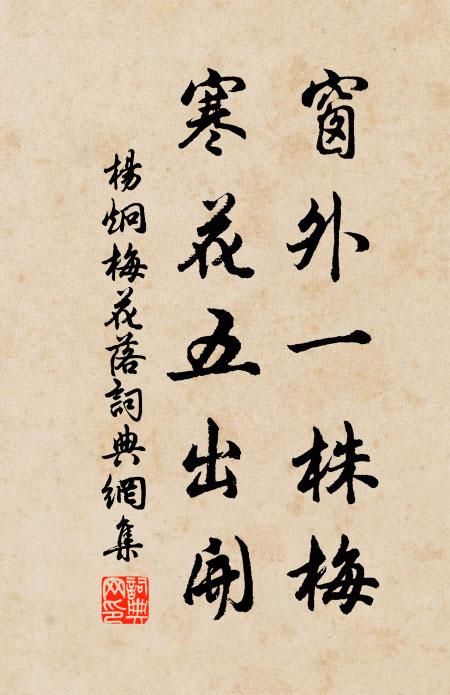 窗外一株梅
寒花五出開
楊炯梅花落詞典網集
詞典網印